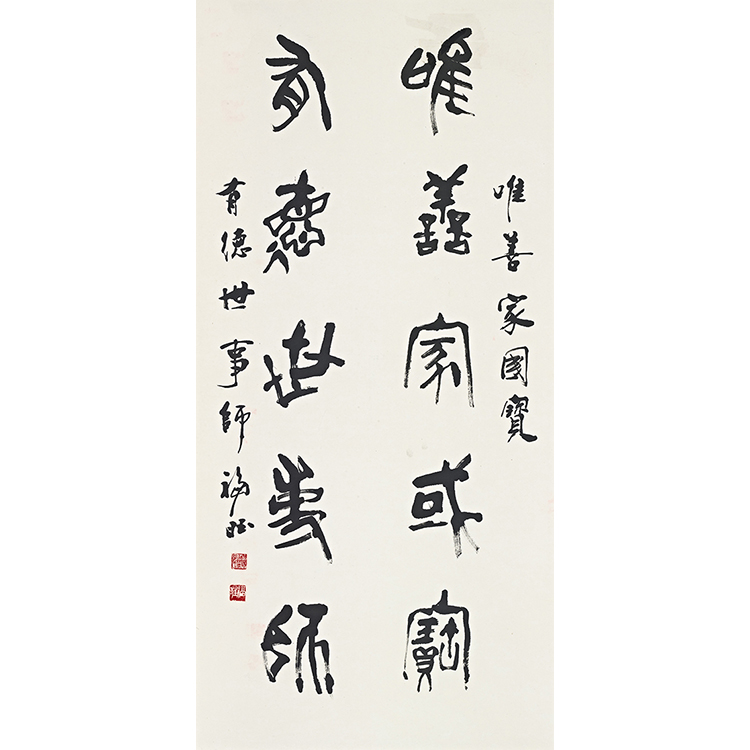 唯善家國寶
唯善家或寶
有德世事師
有德世事師